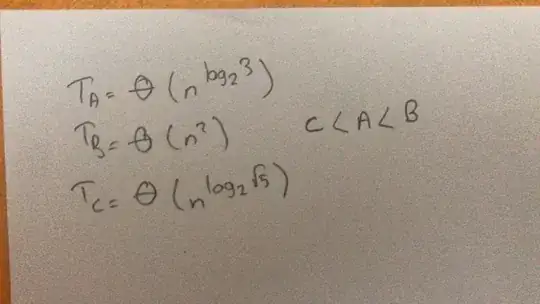 T_A = Θ (n^{log_2 3})
T_B = Θ (n^2) C < A < B
T_C = Θ (n^{log_2 √5})